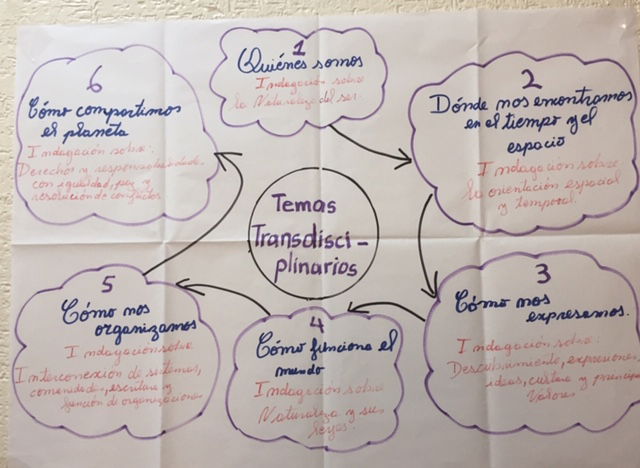 Temas
Transdisci-
plinarios
1
Quiénes somos
Indagación sobre
la Naturaleza del ser.
2
Dónde nos encontramos
en el tiempo y el
espacio
Indagación sobre
la orientación espacial
y temporal.
3
Cómo nos
expresamos.
Indagación sobre:
Descubrimiento, expresiones
ideas, cultura y
Valores
4
Cómo funciona el
mundo
Indagación sobre
Naturaleza y sus
leyes.
5
Cómo nos
organizamos
Indagación sobre
Interconexión de sistemas,
comunidades, estructura y
función de organizaciones
6
Cómo compartimos
el planeta
Indagación sobre:
Derechos y responsabilidades
con igualdad, paz y
resolución de conflictos